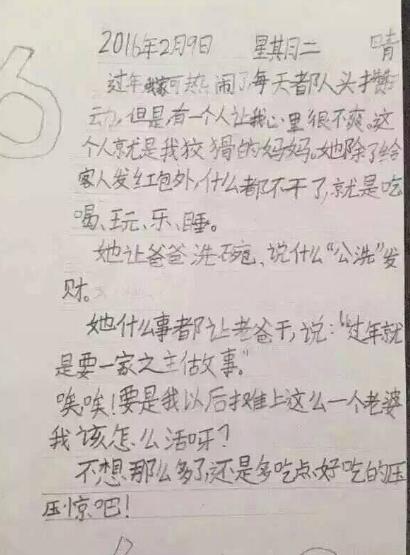 2016年2月9日 星期二 晴
过年我家可热闹了,每天都人头攒
动,但是有一个人让我心里很不爽。这
个人就是我狡猾的妈妈。她除了给
客人发红包外,什么都不干了,就是吃
喝、玩、乐、睡。
她让爸爸洗碗、说什么“公洗”发
财。
她什么事都让老爸干,说:“过年就
是要一家之主估故事。”
唉,唉!要是我以后摊上这么一个老婆
我该怎么活呀?
不想那么多了,还是多吃点好吃的压
压惊吧!